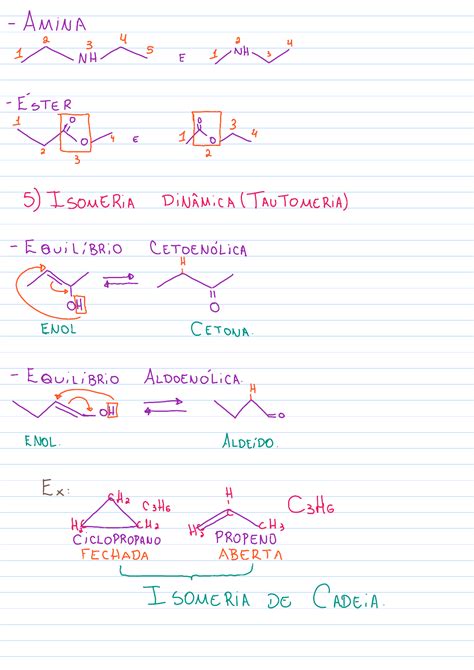 - AMINA
1 2 NH 3 4 5 E 1 2 NH 3 4
- ÉSTER
1 2 O O 3 4 E 1 O O 2 3 4
5) ISOMERIA DINÂMICA (TAUTOMERIA)
- EQUILÍBRIO CETOENÓLICA
H
OH O
ENOL CETONA.
- EQUILÍBRIO ALDOENÓLICA.
OH H O
ENOL. ALDEÍDO.
Ex:
CH2 C3H6 H C C3H6
H2C CH2 H2C CH3
CICLOPROPANO PROPENO
FECHADA ABERTA
ISOMERIA DE CADEIA.